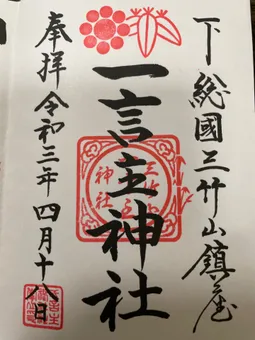 下総國三竹山鎮座
一言主神社
奉拝 令和三年四月十八日